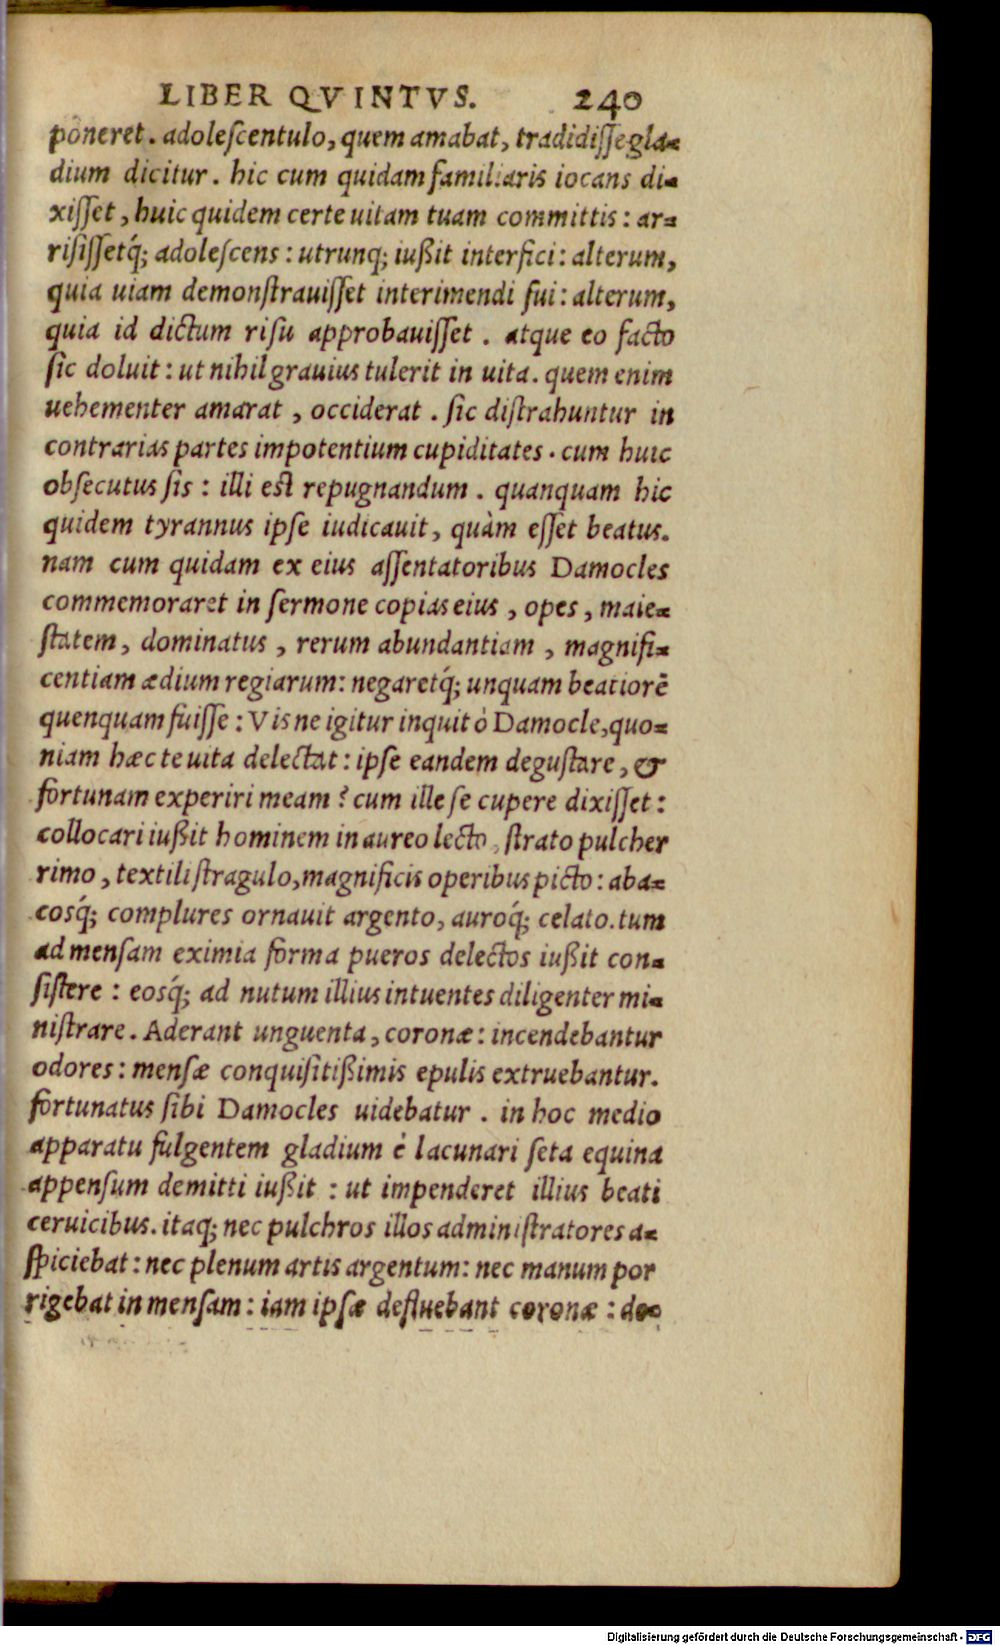 LIBER QVINTVS. 240
poneret. adoleſcentulo, quem amabat, tradidiſſe gla-
dium dicitur. hic cum quidam familiaris iocans di-
xiſſet, huic quidem certe uitam tuam committis: ar-
riſiſſetq́; adoleſcens: utrunq; iußit interfici: alterum,
quia uiam demonſtrauiſſet interimendi ſui: alterum,
quia id dictum riſu approbauiſſet. atque eo facto
ſic doluit: ut nihil grauius tulerit in uita. quem enim
uehementer amarat, occiderat. ſic diſtrahuntur in
contrarias partes impotentium cupiditates. cum huic
obſecutus ſis: illi eſt repugnandum. quanquam hic
quidem tyrannus ipſe iudicauit, quàm eſſet beatus.
nam cum quidam ex eius aſſentatoribus Damocles
commemoraret in ſermone copias eius, opes, maie-
ſtatem, dominatus, rerum abundantiam, magnifi-
centiam ædium regiarum: negaretq́; unquam beatiorē
quenquam fuiſſe: Viſne igitur inquit ò Damocle, quo-
niam hæc te uita delectat: ipſe eandem deguſtare, &
fortunam experiri meam? cum ille ſe cupere dixiſſet:
collocari iußit hominem in aureo lecto, ſtrato pulcher
rimo, textili ſtragulo, magnificis operibus picto: aba-
cosq́; complures ornauit argento, auroq́; celato. tum
ad menſam eximia forma pueros delectos iußit con-
ſiſtere: eosq́; ad nutum illius intuentes diligenter mi-
niſtrare. Aderant unguenta, coronæ: incendebantur
odores: menſæ conquiſitißimis epulis extruebantur.
fortunatus ſibi Damocles uidebatur. in hoc medio
apparatu fulgentem gladium è lacunari ſeta equina
appenſum demitti iußit: ut impenderet illius beati
ceruicibus. itaq; nec pulchros illos adminiſtratores a-
ſpiciebat: nec plenum artis argentum: nec manum por
rigebat in menſam: iam ipſæ defluebant coronæ: de-
Digitalisierung gefördert durch die Deutsche Forschungsgemeinschaft - DFG